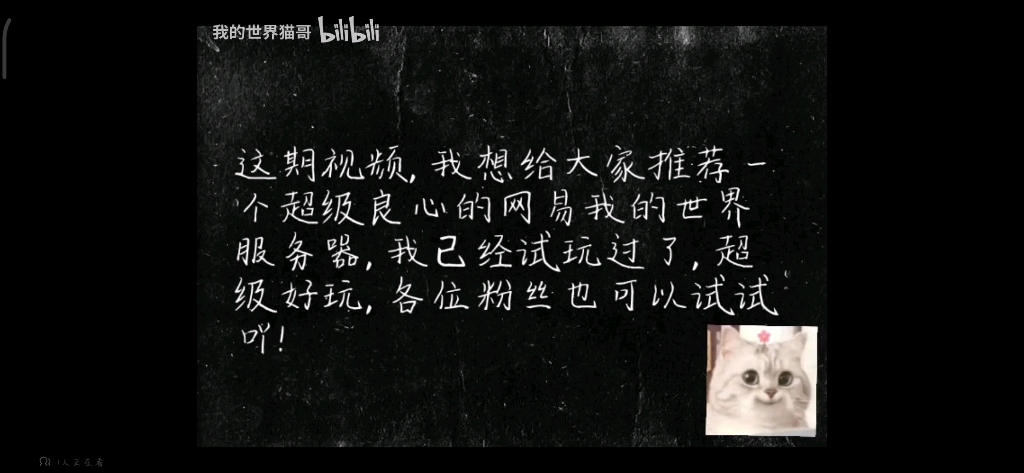 我的世界猫哥 bilibili
这期视频,我想给大家推荐一
个超级良心的网易我的世界
服务器,我已经试玩过了,超
级好玩,各位粉丝也可以试试
吖!
1人正在看